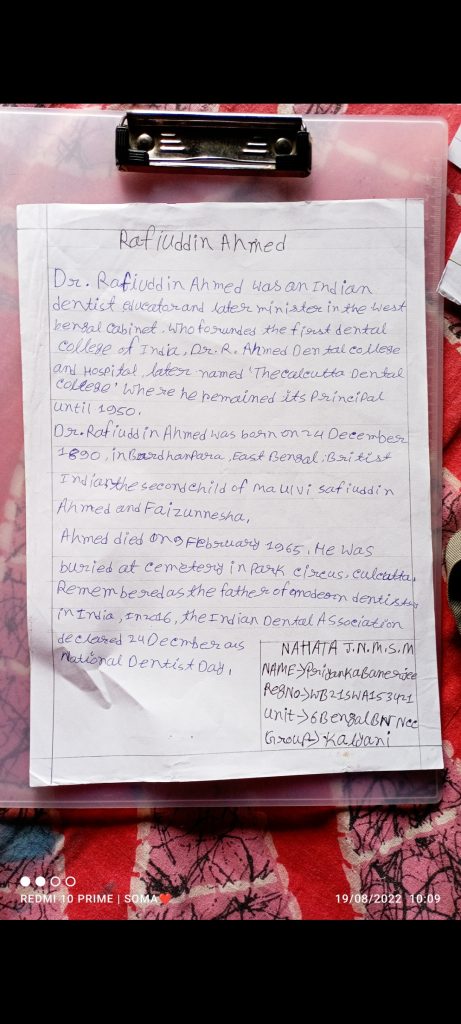 Rafiuddin Ahmed
Dr. Rafiuddin Ahmed was an Indian
dentist educator and later minister in the west
bengal cabinet. Who forunded the first dental
college of India, Dr. R. Ahmed Dental college
and Hospital, later named 'The calcutta Dental
college' Where he remained its Principal
until 1950.
Dr. Rafiuddin Ahmed was born on 24 December
1890, in Bardhanpara, East Bengal, Britist
Indian the second child of maulvi safiuddin
Ahmed and Faizunnesha,
Ahmed died on 9 February 1965. He was
buried at cemetery in park circus, culcutta,
Remembered as the father of modern dentistry
in India, In 2016, the Indian Dental Association
declared 24 Decmber as
National Dentist Day,
NAHATA J.N.M.S.M
NAME→Priyanka Banerjee
Reg No→WB21SWA153421
Unit→6 Bengal BN Ncc
Group→Kalyani
REDMI 10 PRIME | SOMA❤️
19/08/2022 10:09